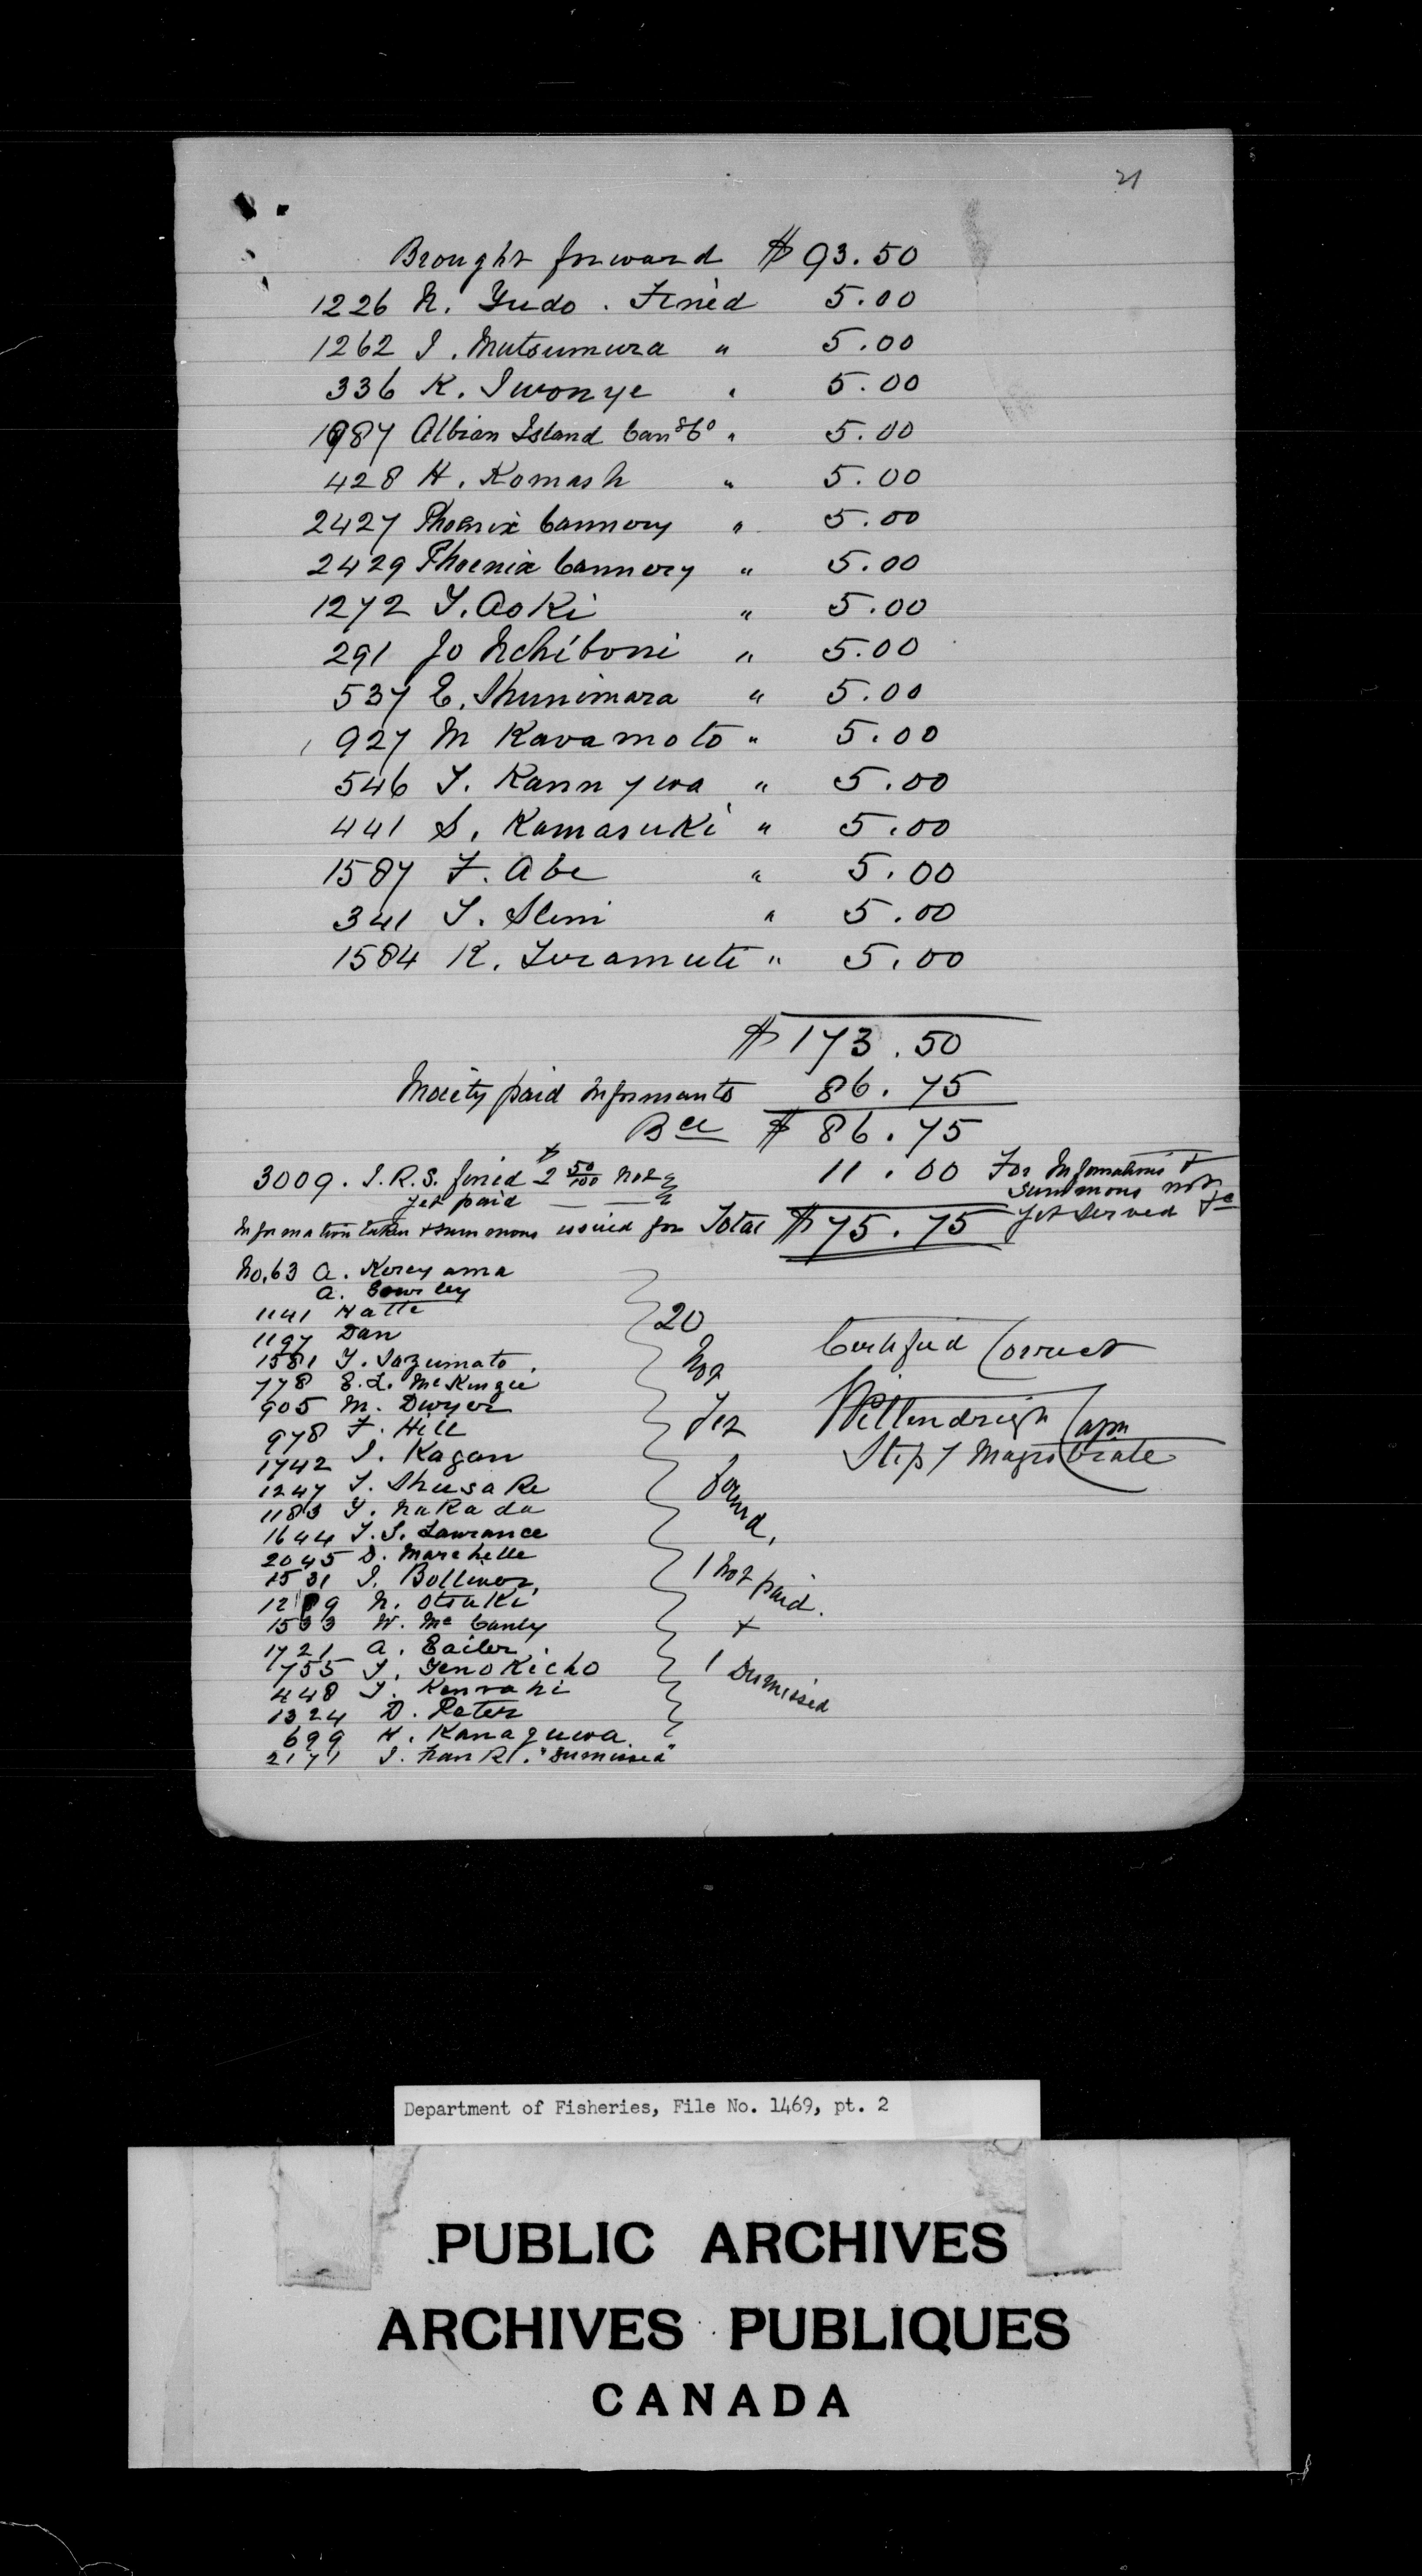 21
Brought forward $ 93.50
1226 N. Yudo. Fined 5.00
1262 I. Mutsumura " 5.00
336 K. Iwonye " 5.00
1987 Albion Island Can Co " 5.00
428 H. Komash " 5.00
2427 Phoenix Cannery " 5.00
2429 Phoenix Cannery " 5.00
1272 Y. Aoki " 5.00
291 Jo Nchiboni " 5.00
537 E. Shunimara " 5.00
927 M Kavamoto " 5.00
546 Y. Kannywa " 5.00
441 S. Kamasuki " 5.00
1587 F. Abe " 5.00
341 Y. Slini " 5.00
1584 K. Iuramuti " 5.00
$ 173.50
Moiety paid Informants 86.75
Bce $ 86.75
3009. I.R.S. fined $2 50/100 not 11.00 For Informations &
yet paid summons not
yet served &c
Information taken & summons issued for Total $75.75
No. 63 A. Koreyama
A.
1141 Hatte
1197 Dan
1581 Y. Sazumato.
778 E. L. McKinzee
905 M. Dwyer
978 F. Hill
1742 I. Kagan
1247 T. Shusake
1183 Y. Nakada
1644 T. S. Lawrance
2045 D. Marchelle
1531 I. Bolliner,
12 9 N. Otsuki
1533 W. McCanly
1721 A. Sailer.
1755 Y. Yenokicho
448 Y. Kenrani
1324 D. Peter
699 H. Kanaguwa
2171 I. Frank. "Dismissed"
20
Not
Yet
found,
1 not paid.
+
1 Dismissed
Certified Correct
Pittendrigh Capn
Stipy Magistrate
Department of Fisheries, File No. 1469, pt. 2
PUBLIC ARCHIVES
ARCHIVES PUBLIQUES
CANADA